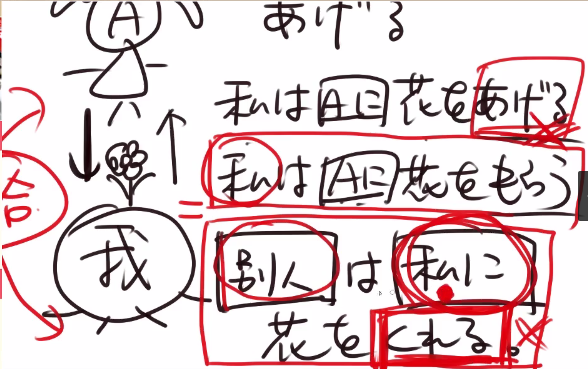 A
あげる
私はAに花をあげる
私はAに花をもらう
給
我
別人は私に
花をくれる。